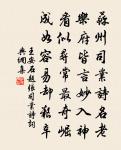 蘇州司業詩名老
樂府皆言妙入神
看似尋常最奇崛
成如容易卻艱辛
王安石題張司業詩詞
典網集